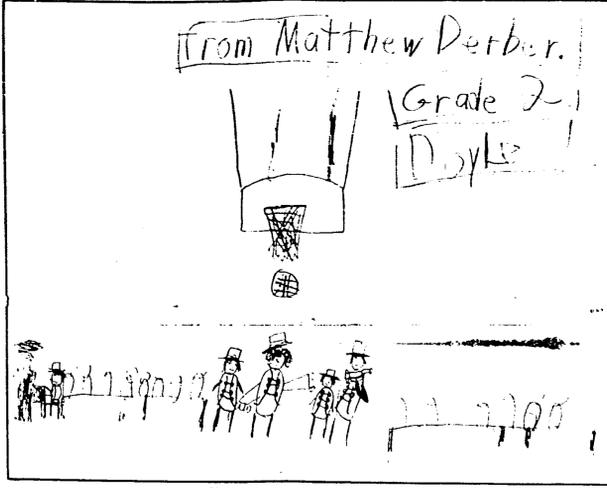 From Matthew Derber.
Grade 2
Doyle